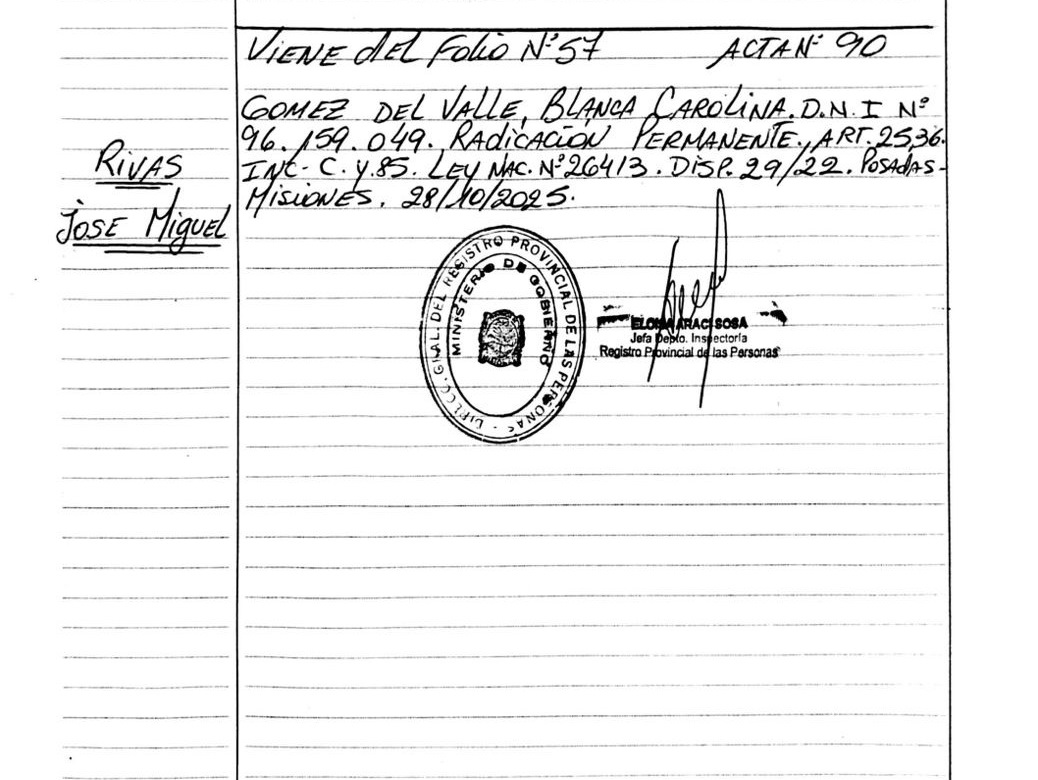 VIENE DEL FOLIO Nº 57 ACTA Nº 90
GOMEZ DEL VALLE, BLANCA CAROLINA. D.N.I Nº
96.159.049. RADICACIÓN PERMANENTE., ART. 25,36.
INC- C. Y. 85. LEY NAC. Nº 26413. DISP. 29/22. POSADAS-
MISIONES. 28/10/2025.
RIVAS
JOSE MIGUEL
DIRECC. GRAL. DEL REGISTRO PROVINCIAL DE LAS PERSONAS -
MINISTERIO DE GOBIERNO
ELOISA ARACI SOSA
Jefa Depto. Inspectoría
Registro Provincial de las Personas